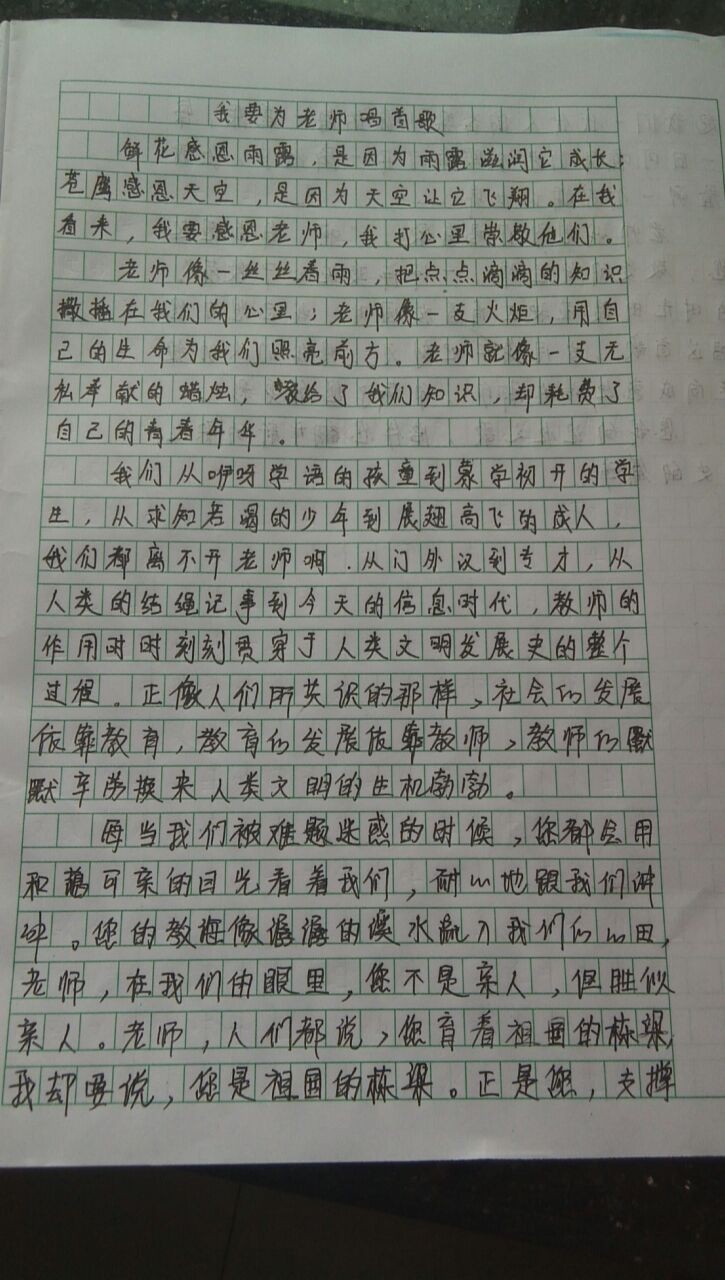 我要为老师唱首歌
鲜花感恩雨露，是因为雨露滋润它成长；
苍鹰感恩天空，是因为天空让它飞翔。在我
看来，我要感恩老师，我打心里崇敬他们。
老师像一丝丝春雨，把点点滴滴的知识
撒播在我们的心里；老师像一支火炬，用自
己的生命为我们照亮前方。老师就像一支无
私奉献的蜡烛，给了我们知识，却耗费了
自己的青春年华。
我们从咿呀学语的孩童到蒙学初开的学
生，从求知若渴的少年到展翅高飞的成人，
我们都离不开老师啊．从门外汉到专才，从
人类的结绳记事到今天的信息时代，教师的
作用时时刻刻贯穿于人类文明发展史的整个
过程。正像人们所共识的那样，社会的发展
依靠教育，教育的发展依靠教师，教师的默
默辛劳换来人类文明的生机勃勃。
每当我们被难题迷惑的时候，您都会用
和蔼可亲的目光看着我们，耐心地跟我们讲
解。您的教诲像潺潺的溪水流入我们的心田，
老师，在我们的眼里，您不是亲人，但胜似
亲人。老师，人们都说，您育着祖国的栋梁，
我却要说，您是祖国的栋梁。正是您，支撑